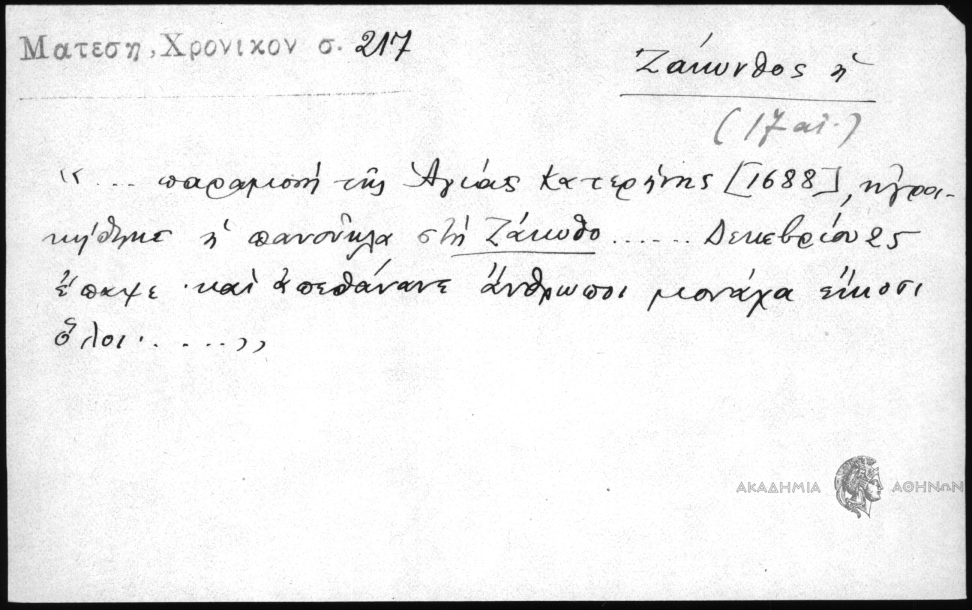 Ματεση, Χρονικον σ. 217
Ζάκυνθος ἡ
(17 αἰ.)
"... παραμονή τῆς Ἁγιάς Κατερήνης [1688], ηγροι-
κήθηκε ἡ πανούκλα στή Ζάκυθο ...... Δεκεβρίου 25
ἔπαψε καί ἀπεθάνανε ἄνθρωποι μονάχα εἴκοσι
ὅλοι ......,,
ΑΚΑΔΗΜΙΑ ΑΘΗΝΩΝ